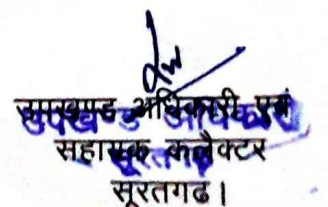 उपखण्ड अधिकारी एवं
सहायक कलैक्टर
सूरतगढ।